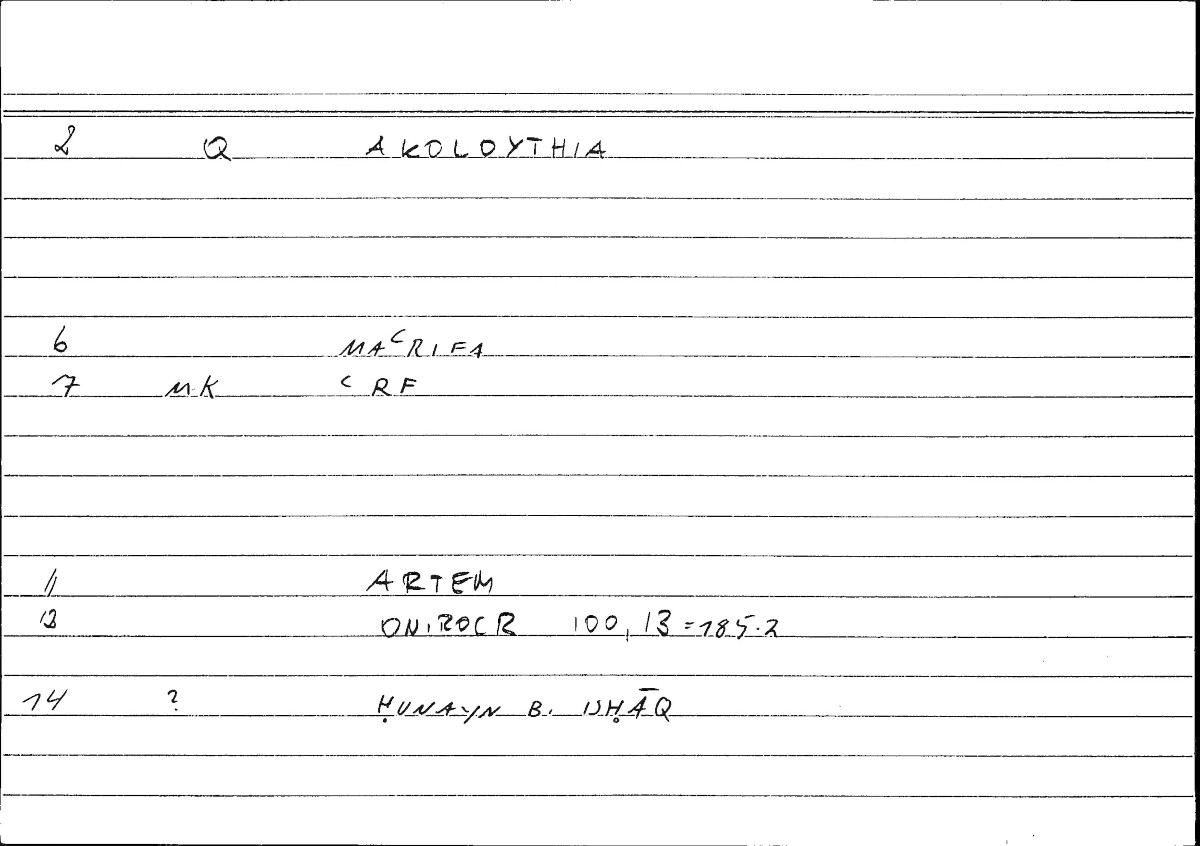 2 Q AKOLOYTHIA
6 MAʿRIFA
7 MK ʿRF
11 ARTEM
13 ONIROCR 100,13=185.2
14 ? ḤUNAYN B. ISḤĀQ